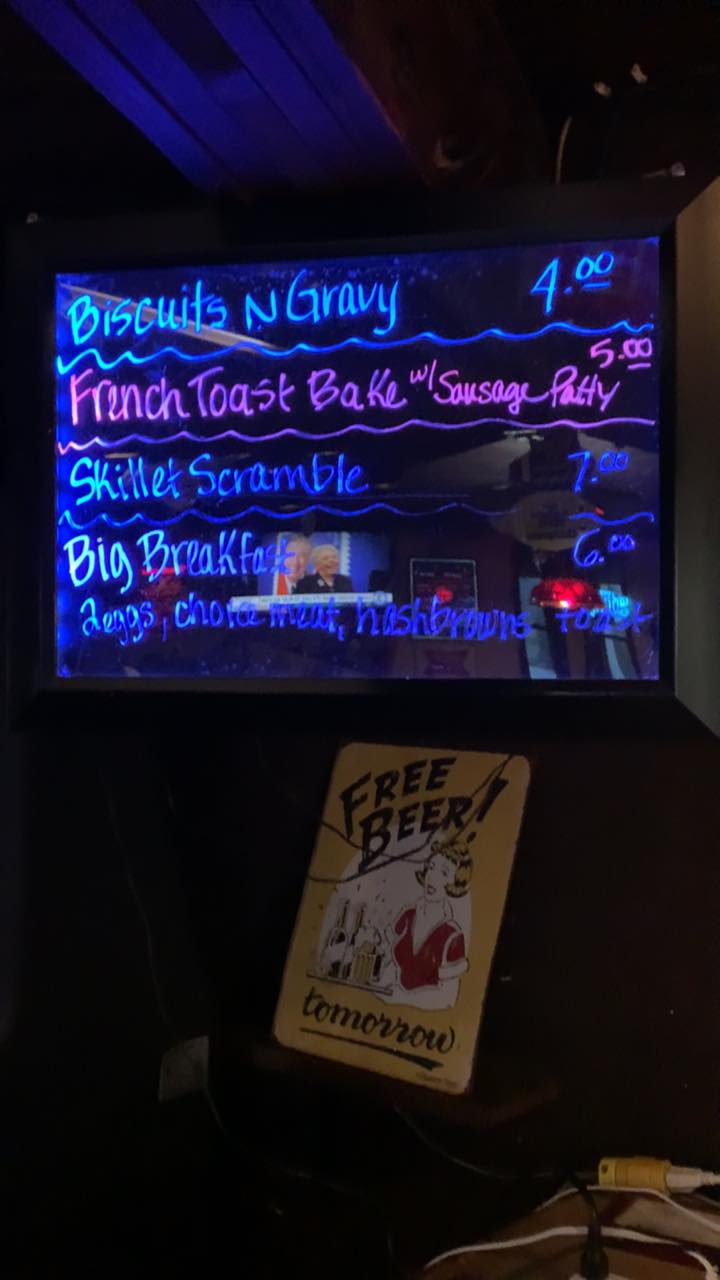 Biscuits N Gravy 4.00
French Toast Bake w/ Sausage Patty 5.00
Skillet Scramble 7.00
Big Breakfast 6.00
2eggs, choice meat, hashbrowns toast
FREE
BEER!
tomorrow